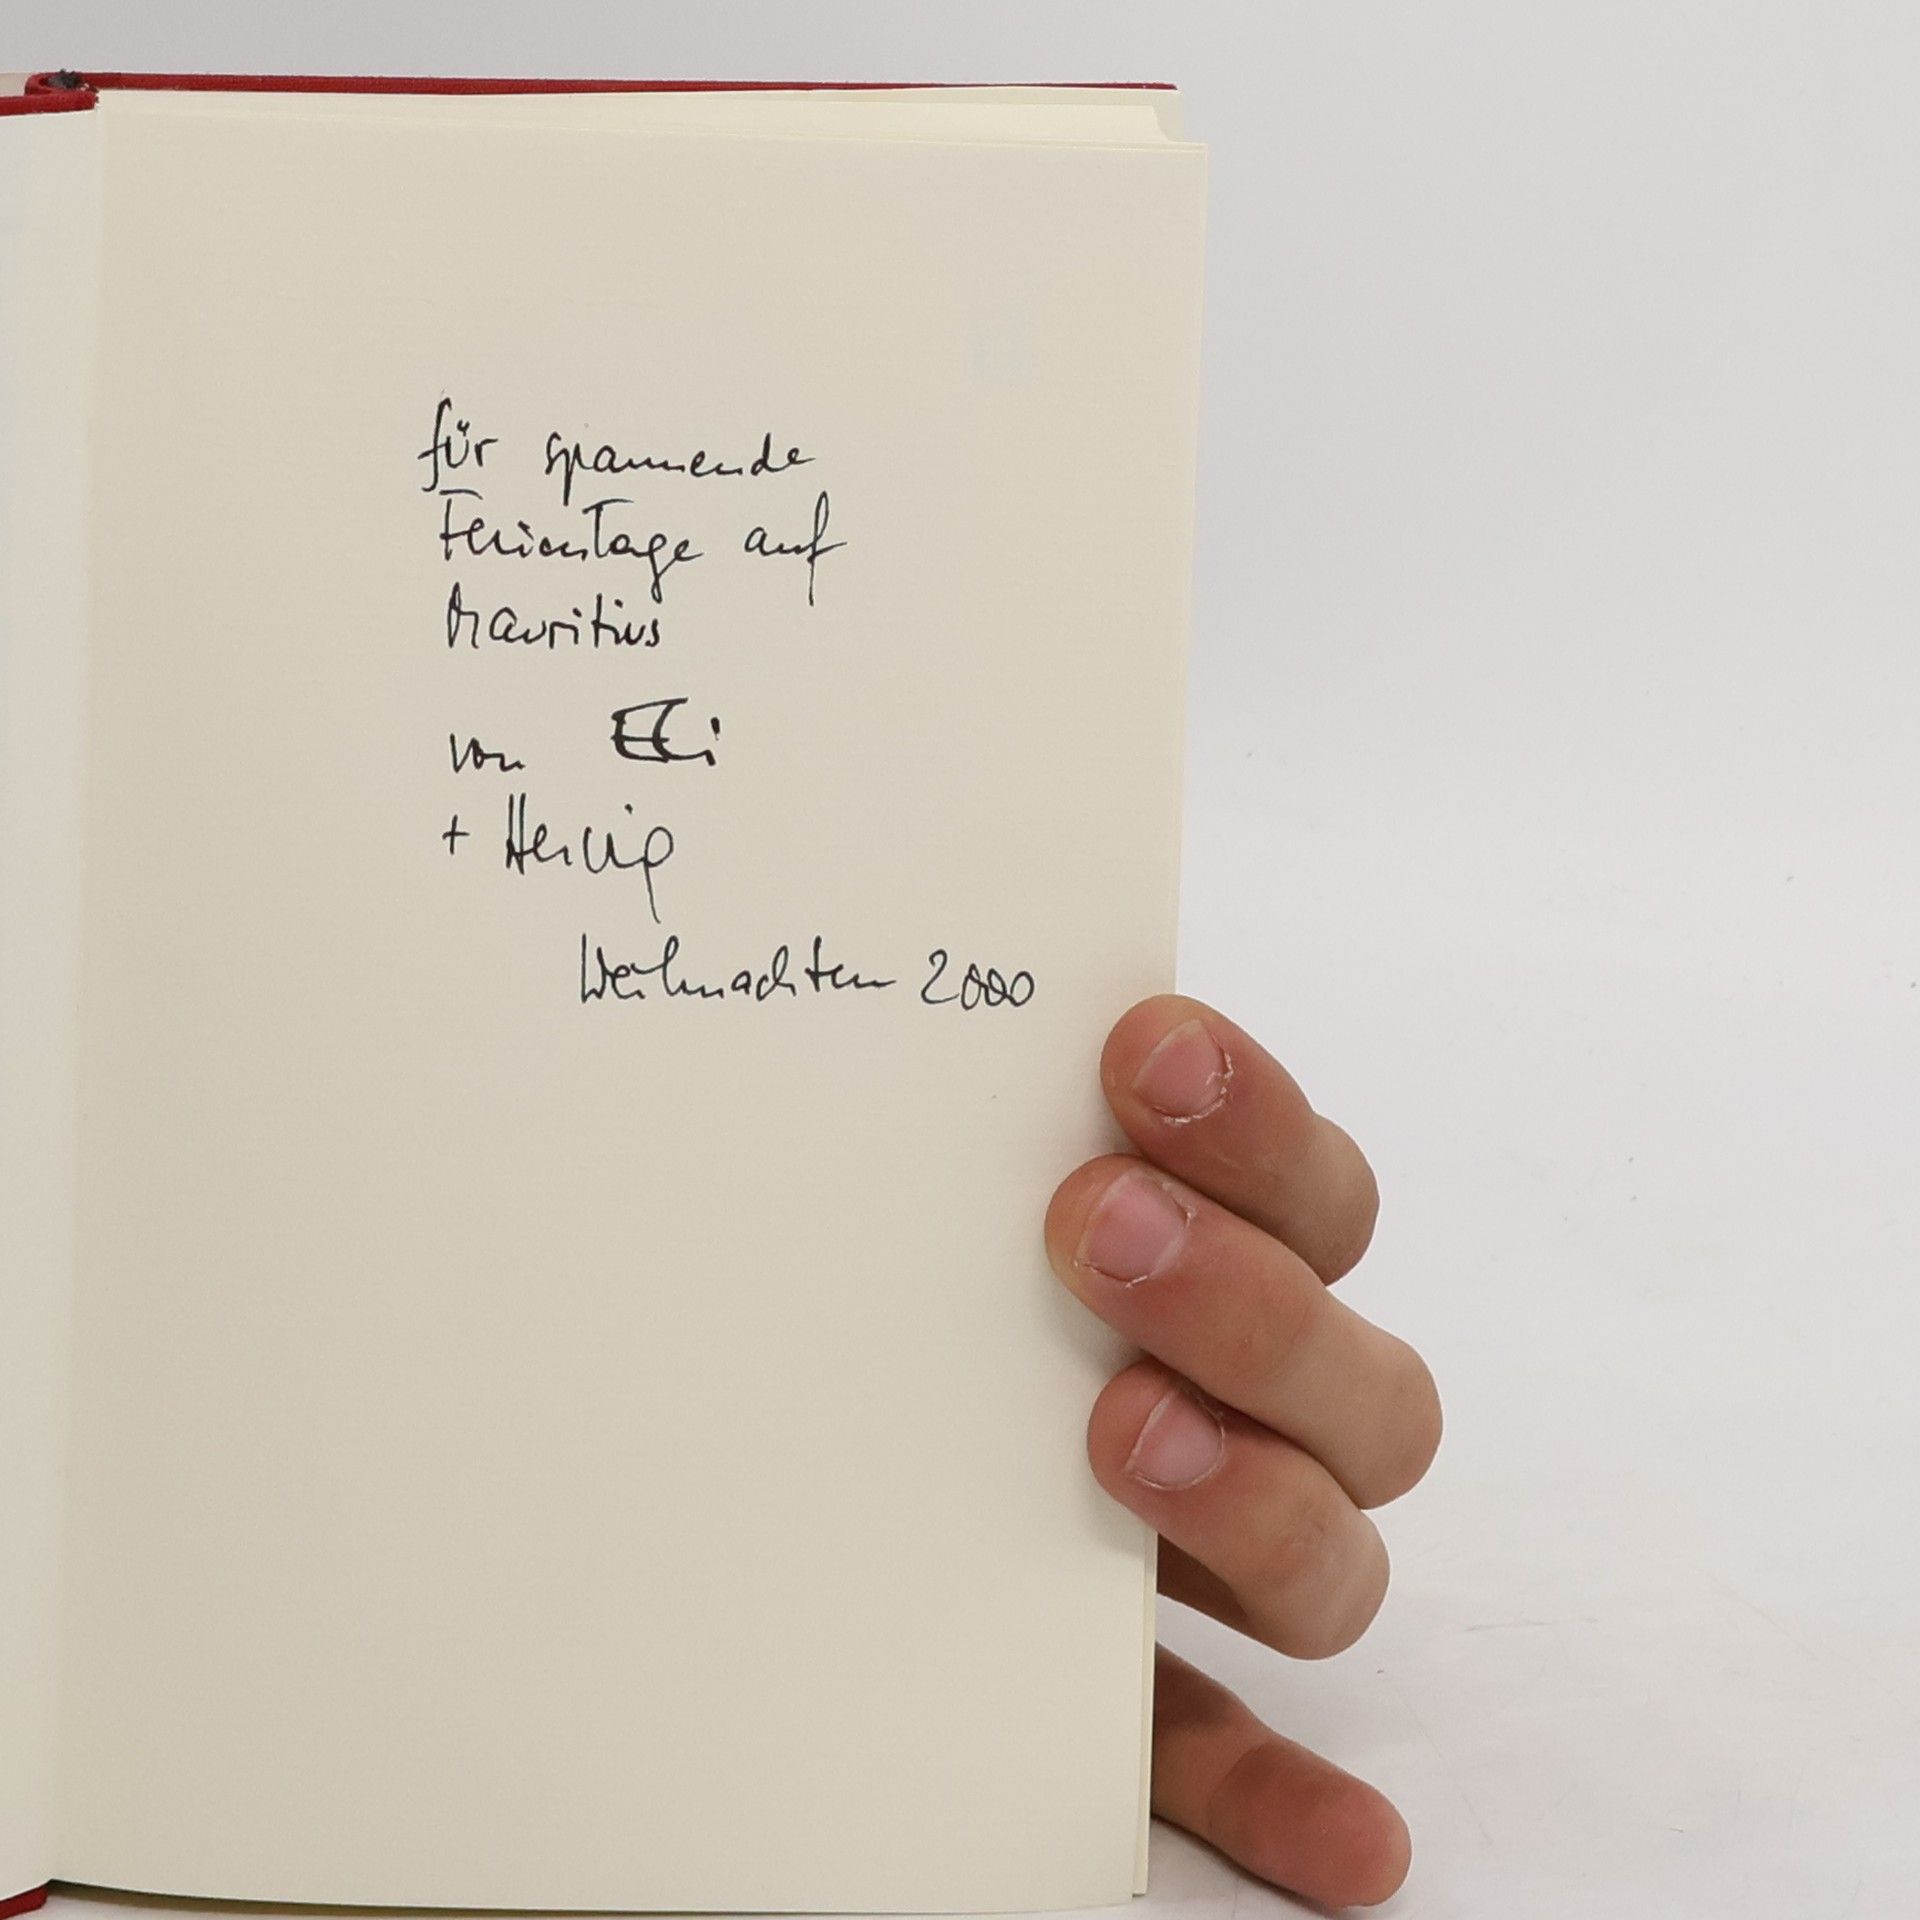 für spannende
Ferientage auf
Mauritius
von Elli
+ Herwig
Weihnachten 2000